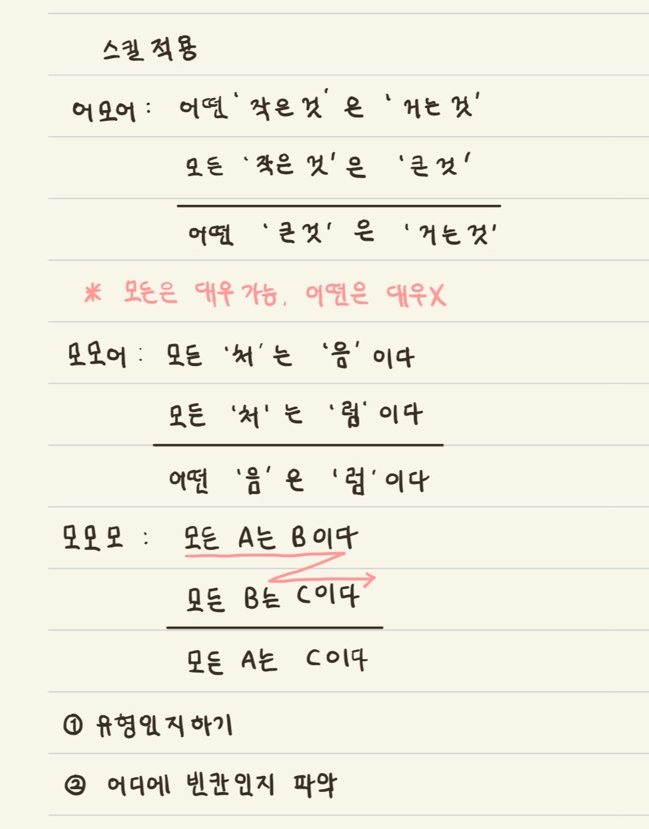 스킬 적용
어모어 : 어떤 '작은 것' 은 '거는 것'
모든 '작은 것' 은 '큰 것'
어떤 '큰 것' 은 '거는 것'
* 모든은 대우 가능. 이떤은 대우X
모모어 : 모든 '처' 는 '음' 이다
모든 '처' 는 '럼' 이다
어떤 '음' 은 '럼' 이다
모모모 : 모든 A는 B이다
모든 B는 C이다
모든 A는 C이다
① 유형인지하기
② 어디에 빈칸인지 파악